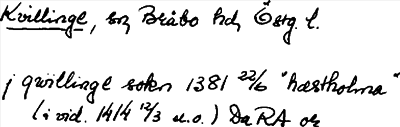 Kvillinge, sn, Bråbo hd, Östg. l.
j qwillinge sokn 1381 22/6 "hæstholma"
(i vid. 1414 12/3 u.o.) Da RA or